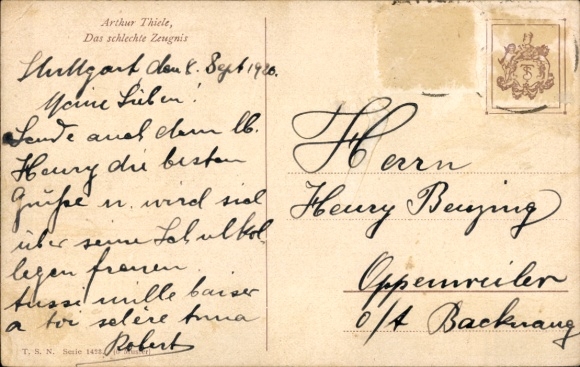 Arthur Thiele,
Das schlechte Zeugnis
Stuttgart, den 8. Sept 1920.
Meine Lieben!
Sende auch dem lb.
Henry die besten
Grüße u. wird sich
über seine Schulkol
legen freuen.
Aussi mille baiser
a toi
Robert
T. S. N. Serie
Herrn
Henry Benzing
Oppenweiler
o/A Backnang